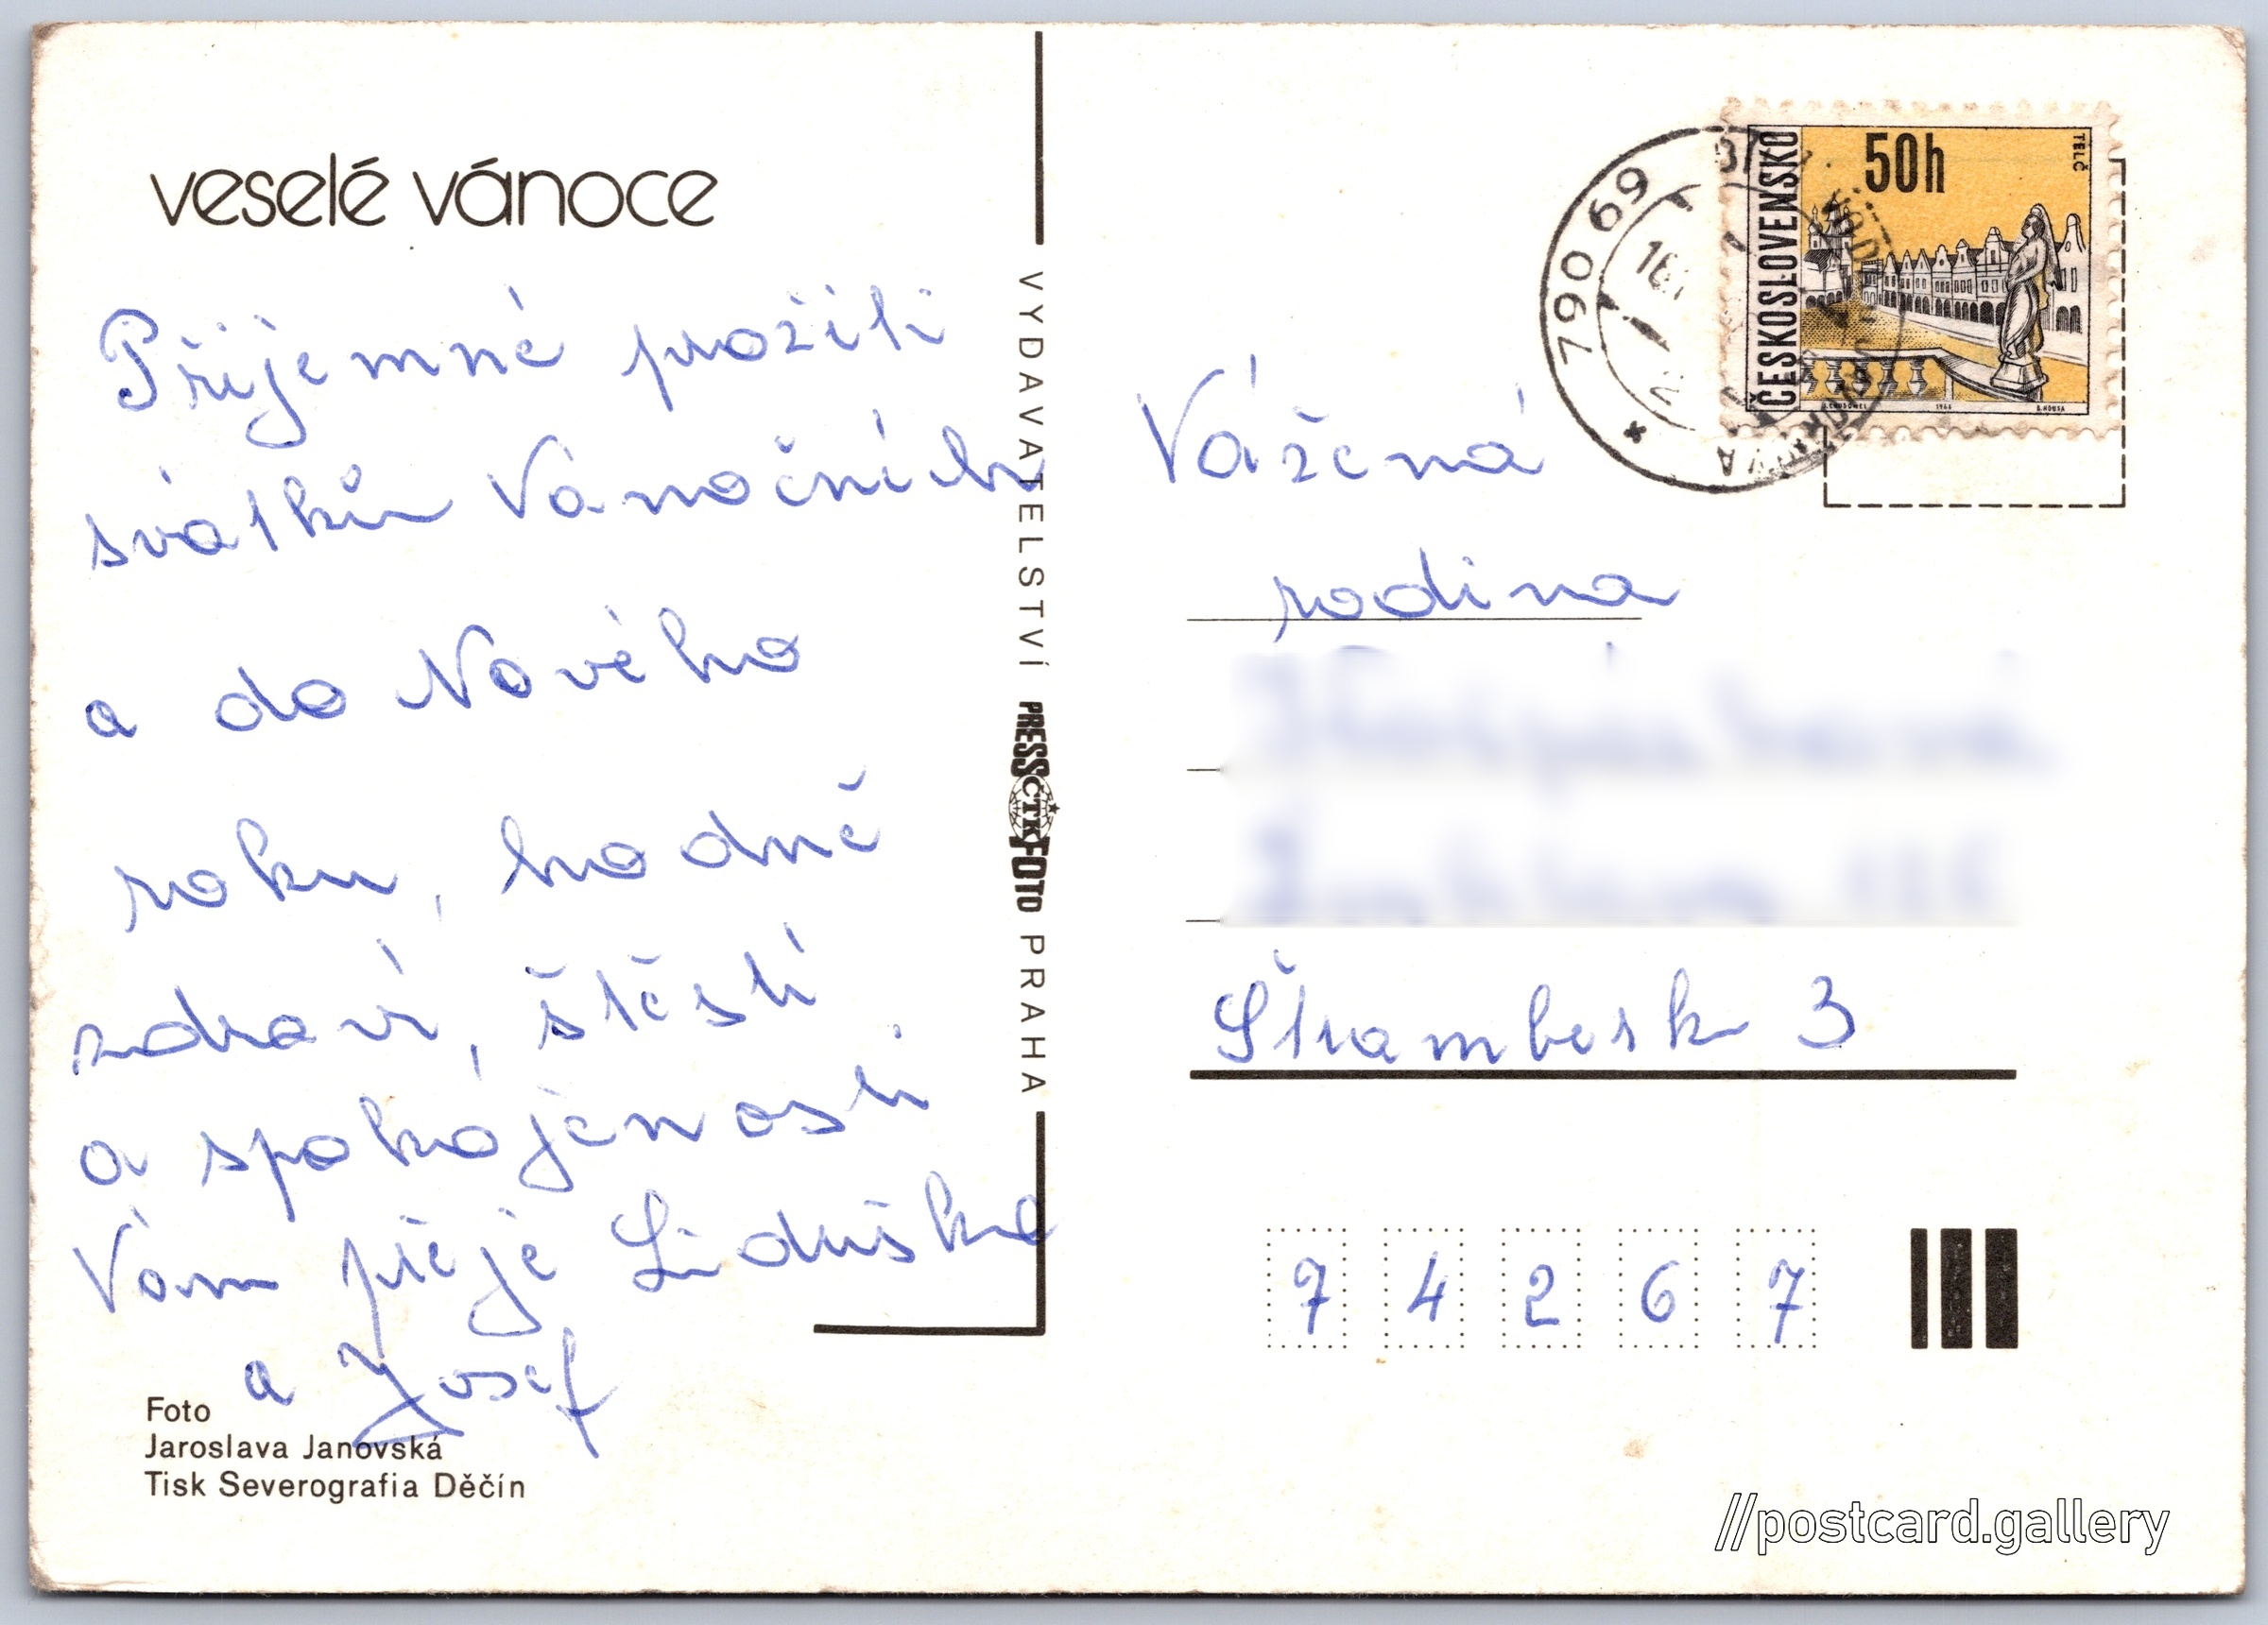 veselé vánoce
Příjemné prožití
svátkův Vánočních
a do Nového
roku, hodně
zdraví, štěstí
a spokojenosti
Vám přeje Liduška
a Josef
Foto
Jaroslava Janovská
Tisk Severografia Děčín
VYDAVATELSTVÍ PRESSFOTO PRAHA
ČTK
ČESKOSLOVENSKO
50h
TELČ
1966
B. HOUSA
790 69
16.
Vážená
rodina
Štramberk 3
74267
//postcard.gallery